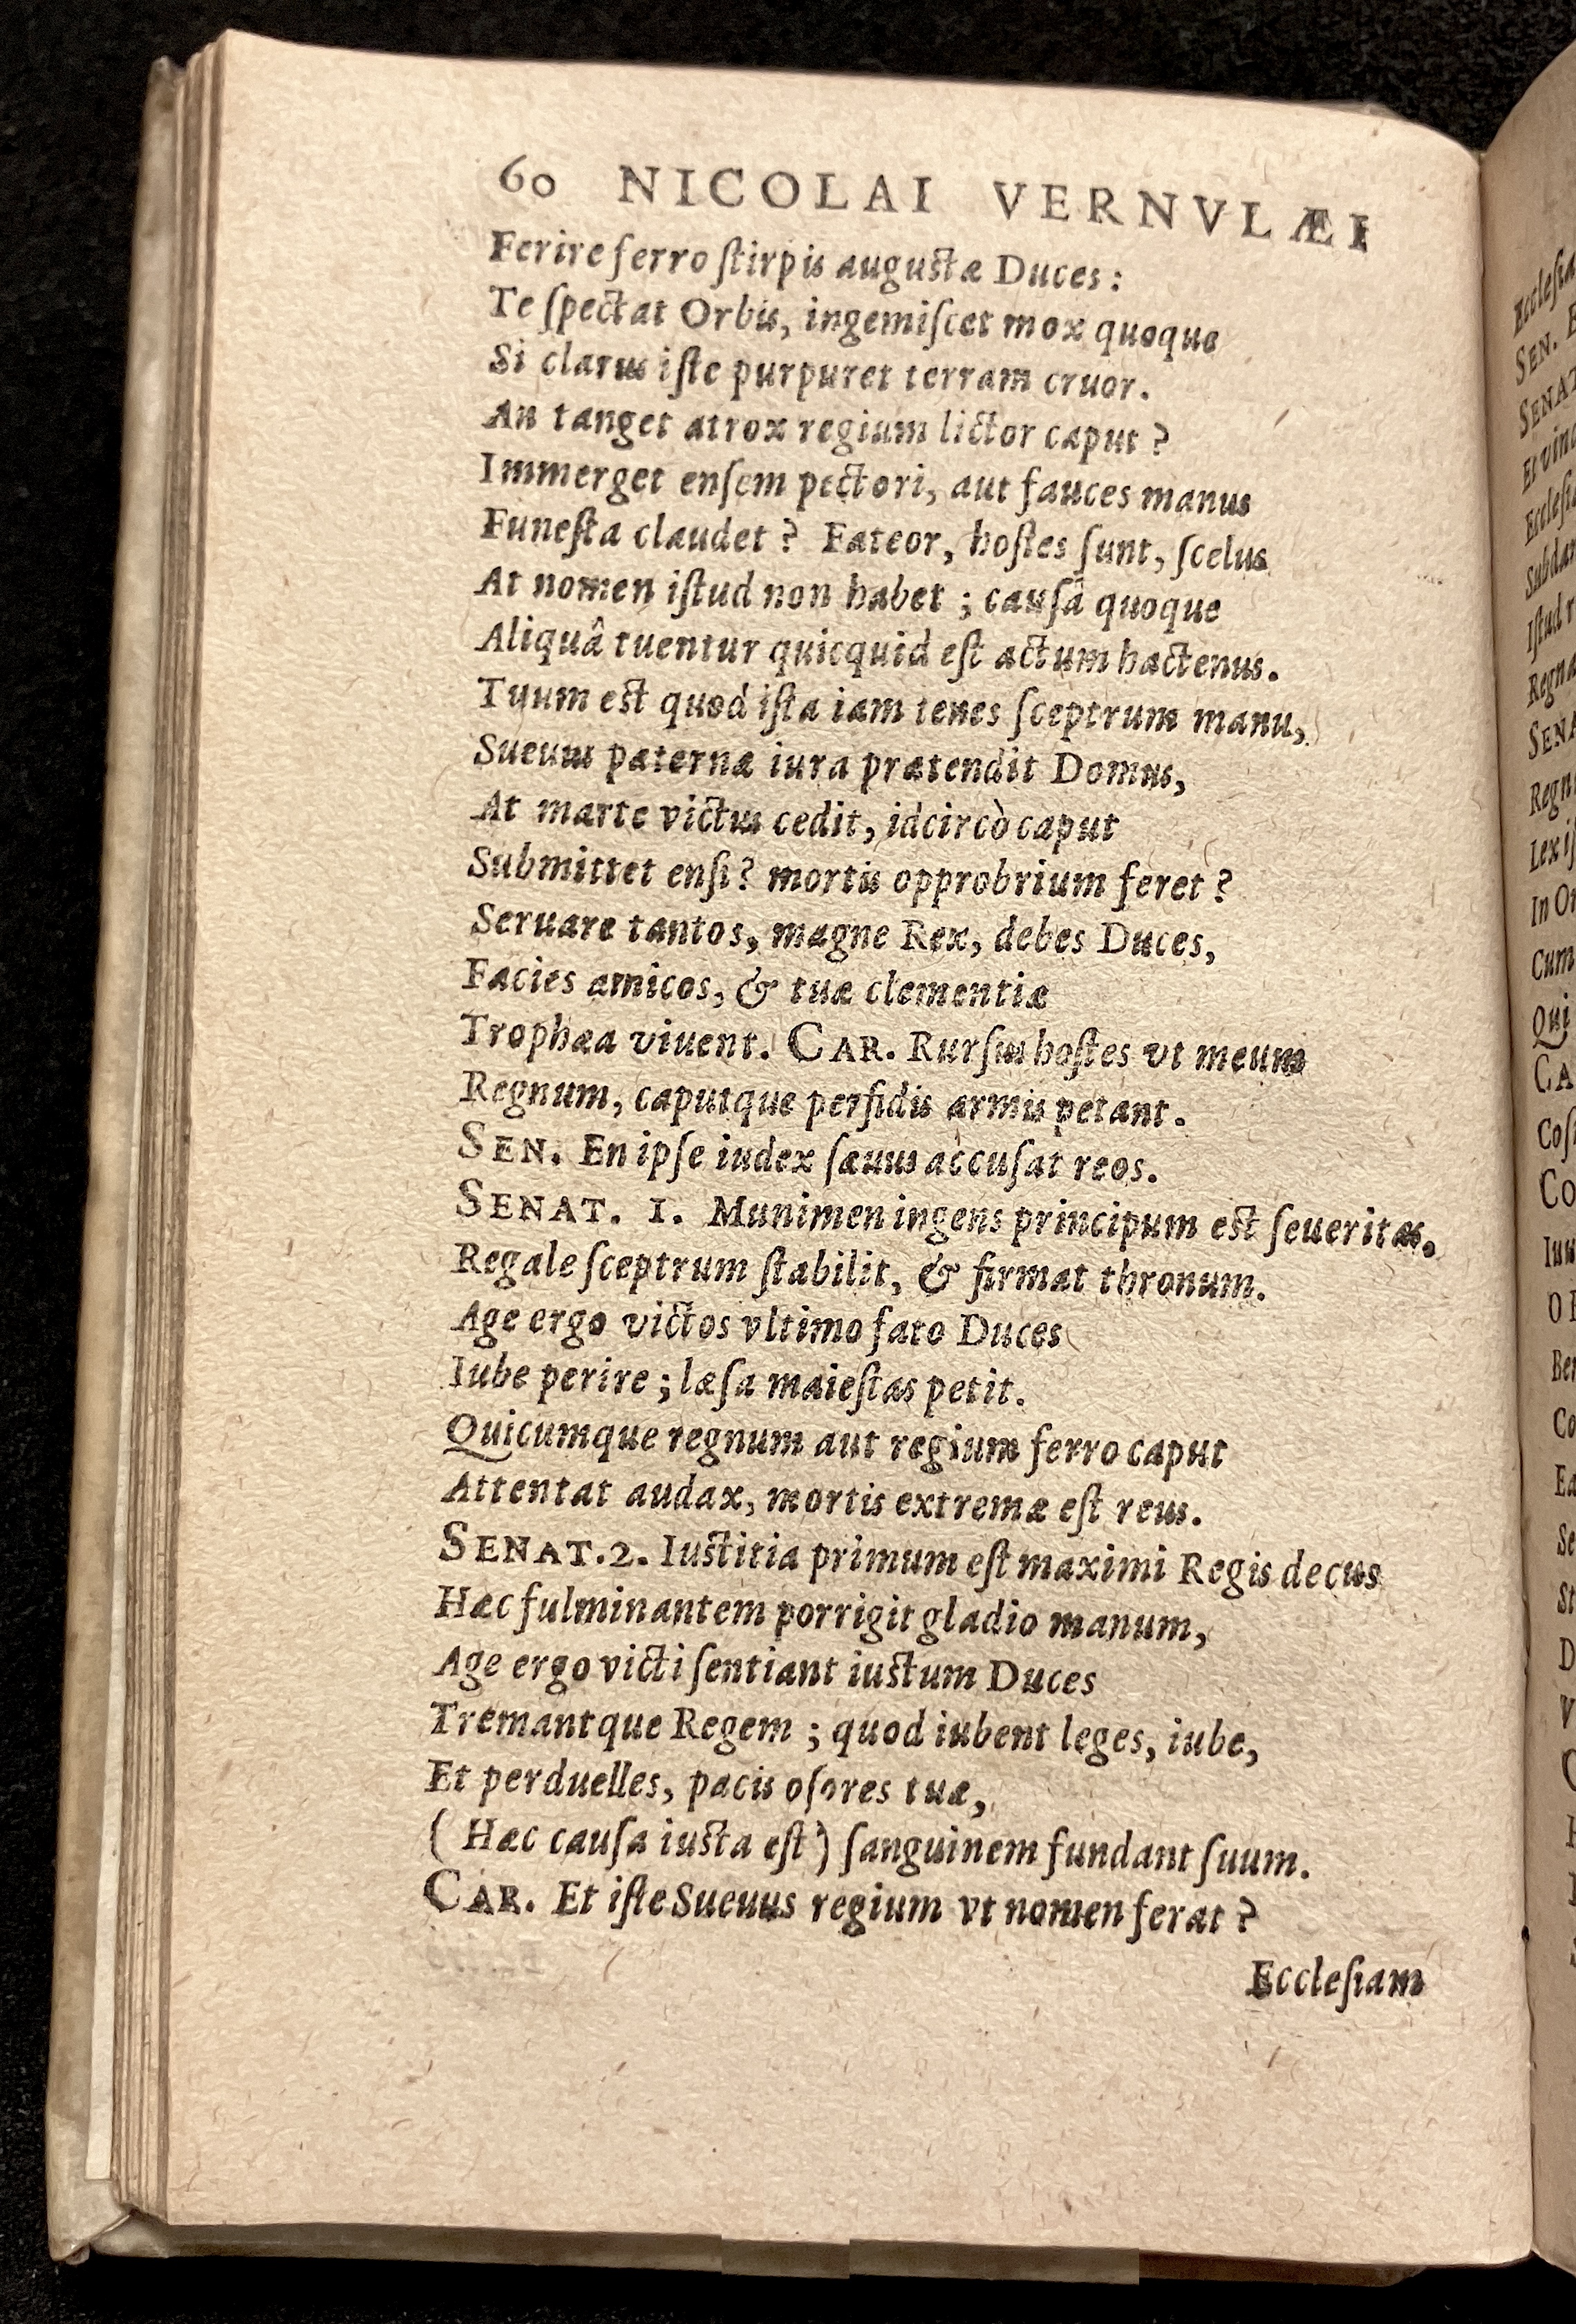 60 NICOLAI VERNVLÆI
Ferire ferro ſtirpis auguſtæ Duces:
Te ſpectat Orbis, ingemiſcet mox quoque
Si clarus iſte purpuret terram cruor.
An tanget atrox regium lictor caput?
Immerget enſem pectori, aut fauces manus
Funeſta claudet? Fateor, hoſtes ſunt, ſcelus
At nomen iſtud non habet; causâ quoque
Aliquâ tuentur quicquid eſt actum hactenus.
Tuum eſt quod iſta iam tenes ſceptrum manu,
Sueuus paternæ iura prætendit Domus,
At marte victus cedit, idcircò caput
Submittet enſi? mortis opprobrium feret?
Seruare tantos, magne Rex, debes Duces,
Facies amicos, & tuæ clementiæ
Trophæa viuent. CAR. Rurſus hoſtes vt meum
Regnum, caputque perfidis armis petant.
SEN. En ipſe iudex ſæuus accuſat reos.
SENAT. 1. Munimen ingens principum eſt ſeueritas.
Regale ſceptrum ſtabilit, & firmat thronum.
Age ergo victos vltimo fato Duces
Iube perire; læſa maieſtas petit.
Quicumque regnum aut regium ferro caput
Attentat audax, mortis extremæ eſt reus.
SENAT.2. Iuſtitia primum eſt maximi Regis decus
Hæc fulminantem porrigit gladio manum,
Age ergo victi ſentiant iuſtum Duces
Tremantque Regem; quod iubent leges, iube,
Et perduelles, pacis oſores tuæ,
(Hæc cauſa iuſta eſt) ſanguinem fundant ſuum.
CAR. Et iſte Sueuus regium vt nomen ferat?
Eccleſiam